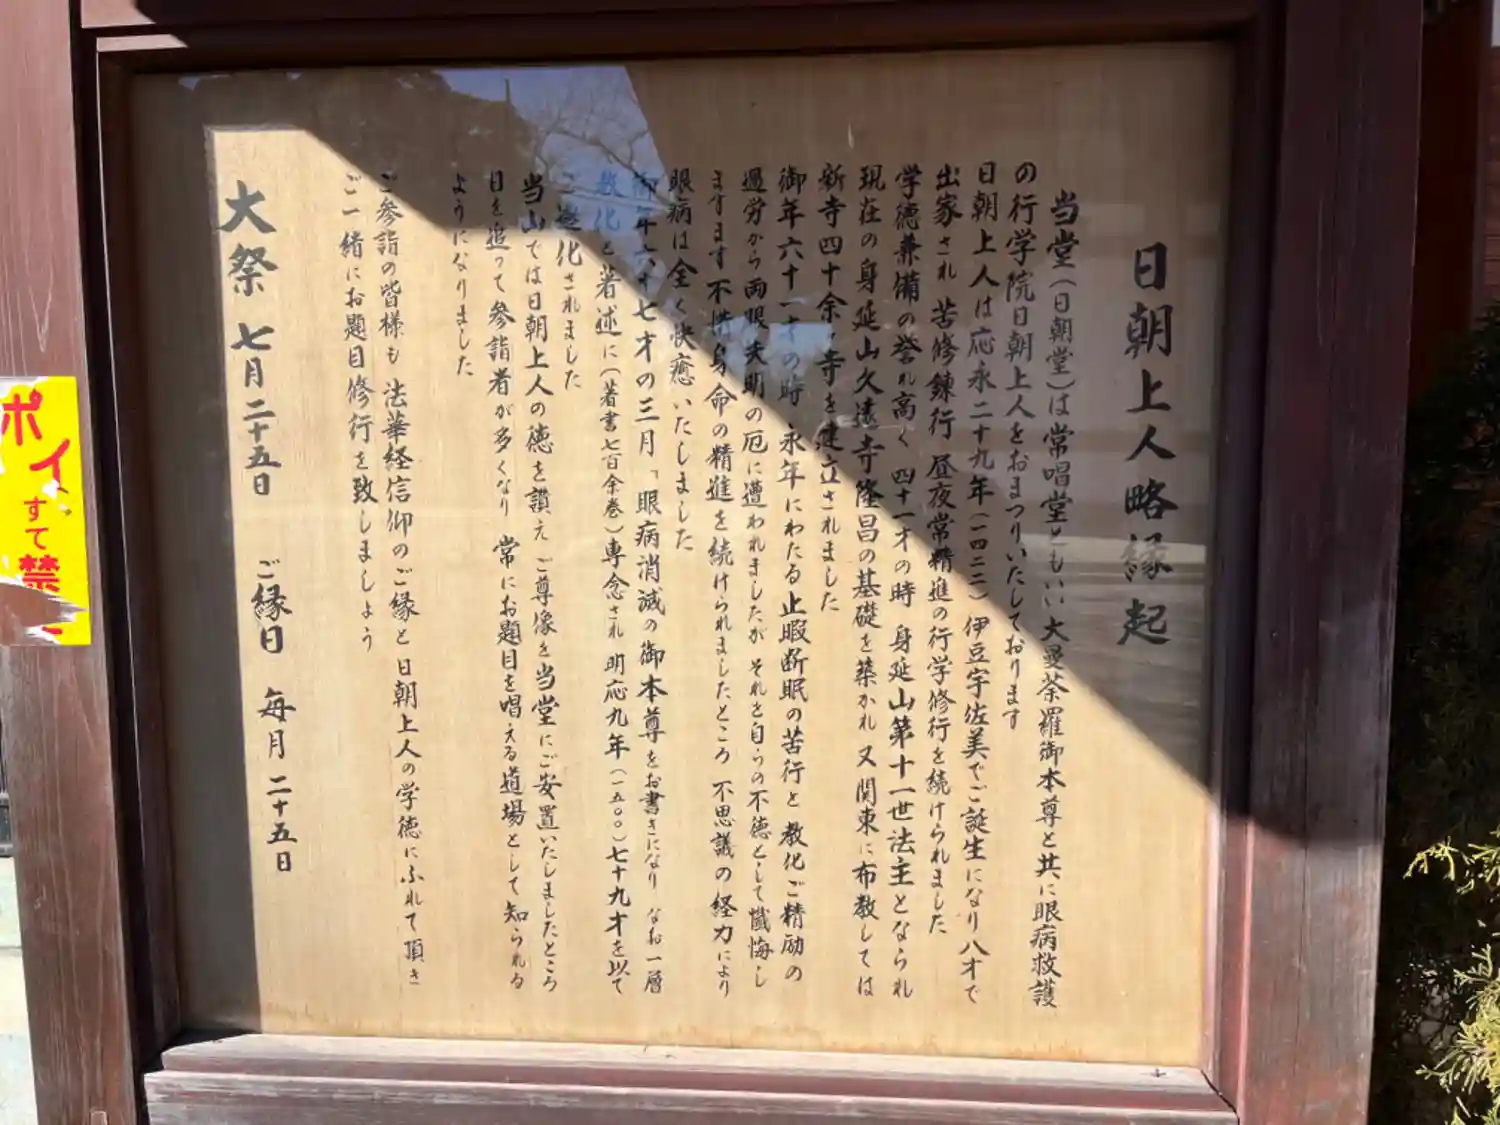 日朝上人略縁起
当堂(日朝堂)は常唱堂ともいい大曼荼羅御本尊と共に眼病救護
の行学院日朝上人をおまつりいたしております
日朝上人は応永二十九年(一四二二)伊豆宇佐美でご誕生になり八才で
出家され 苦修錬行 昼夜常精進の行学修行を続けられました
学徳兼備の誉れ高く 四十一才の時 身延山第十一世法主となられ
現在の身延山久遠寺隆昌の基礎を築かれ 又 関東に布教しては
新寺四十余ヶ寺を建立されました
御年六十一才の時 永年にわたる止暇断眠の苦行と 教化ご精励の
過労から両眼失明の厄に遭われましたが それを自らの不徳として懺悔し
ますます不惜身命の精進を続けられましたところ 不思議の経力により
眼病は全く快癒いたしました
御年六十七才の三月「眼病消滅の御本尊をお書きになり なお一層
教化と著述に(著書七百余巻)専念され 明応九年(一五〇〇)七十九才を以て
ご遷化されました
当山では日朝上人の徳を讃え ご尊像を当堂にご安置いたしましたところ
日を追って参詣者が多くなり 常にお題目を唱える道場として知られる
ようになりました
ご参詣の皆様も 法華経信仰のご縁と 日朝上人の学徳にふれて頂き
ご一緒にお題目修行を致しましょう
大祭 七月二十五日 ご縁日 毎月二十五日
ポイ
すて
禁